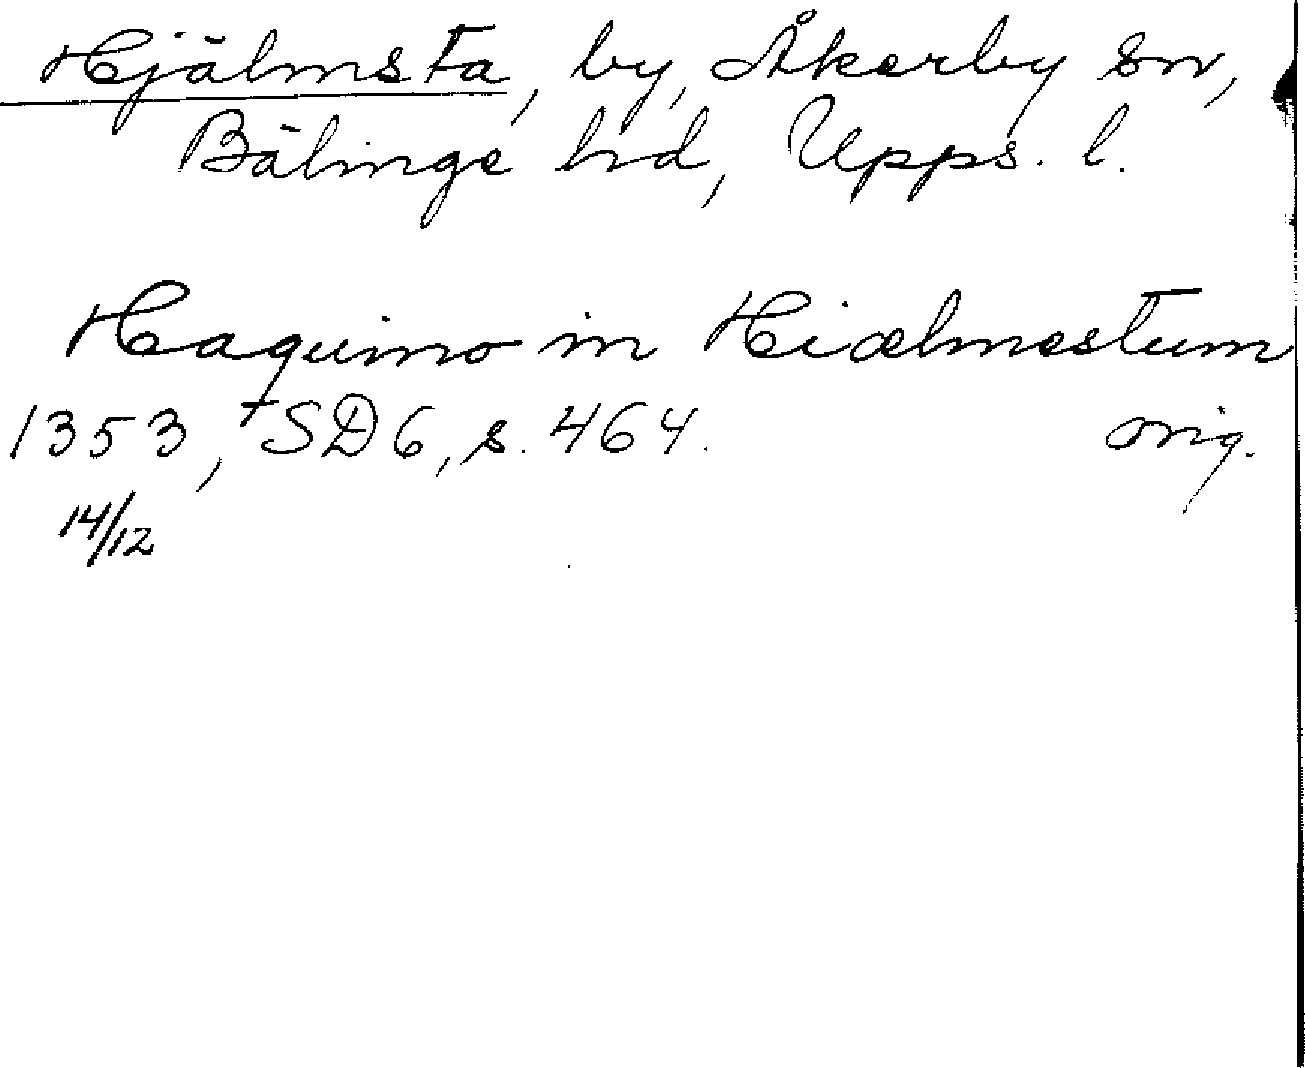 Hjälmsta, by, Åkerby sn,
Bälinge hd, Upps. l.
Haquino in Hiælmestum
1353, SD 6, s. 464. orig.
14/12